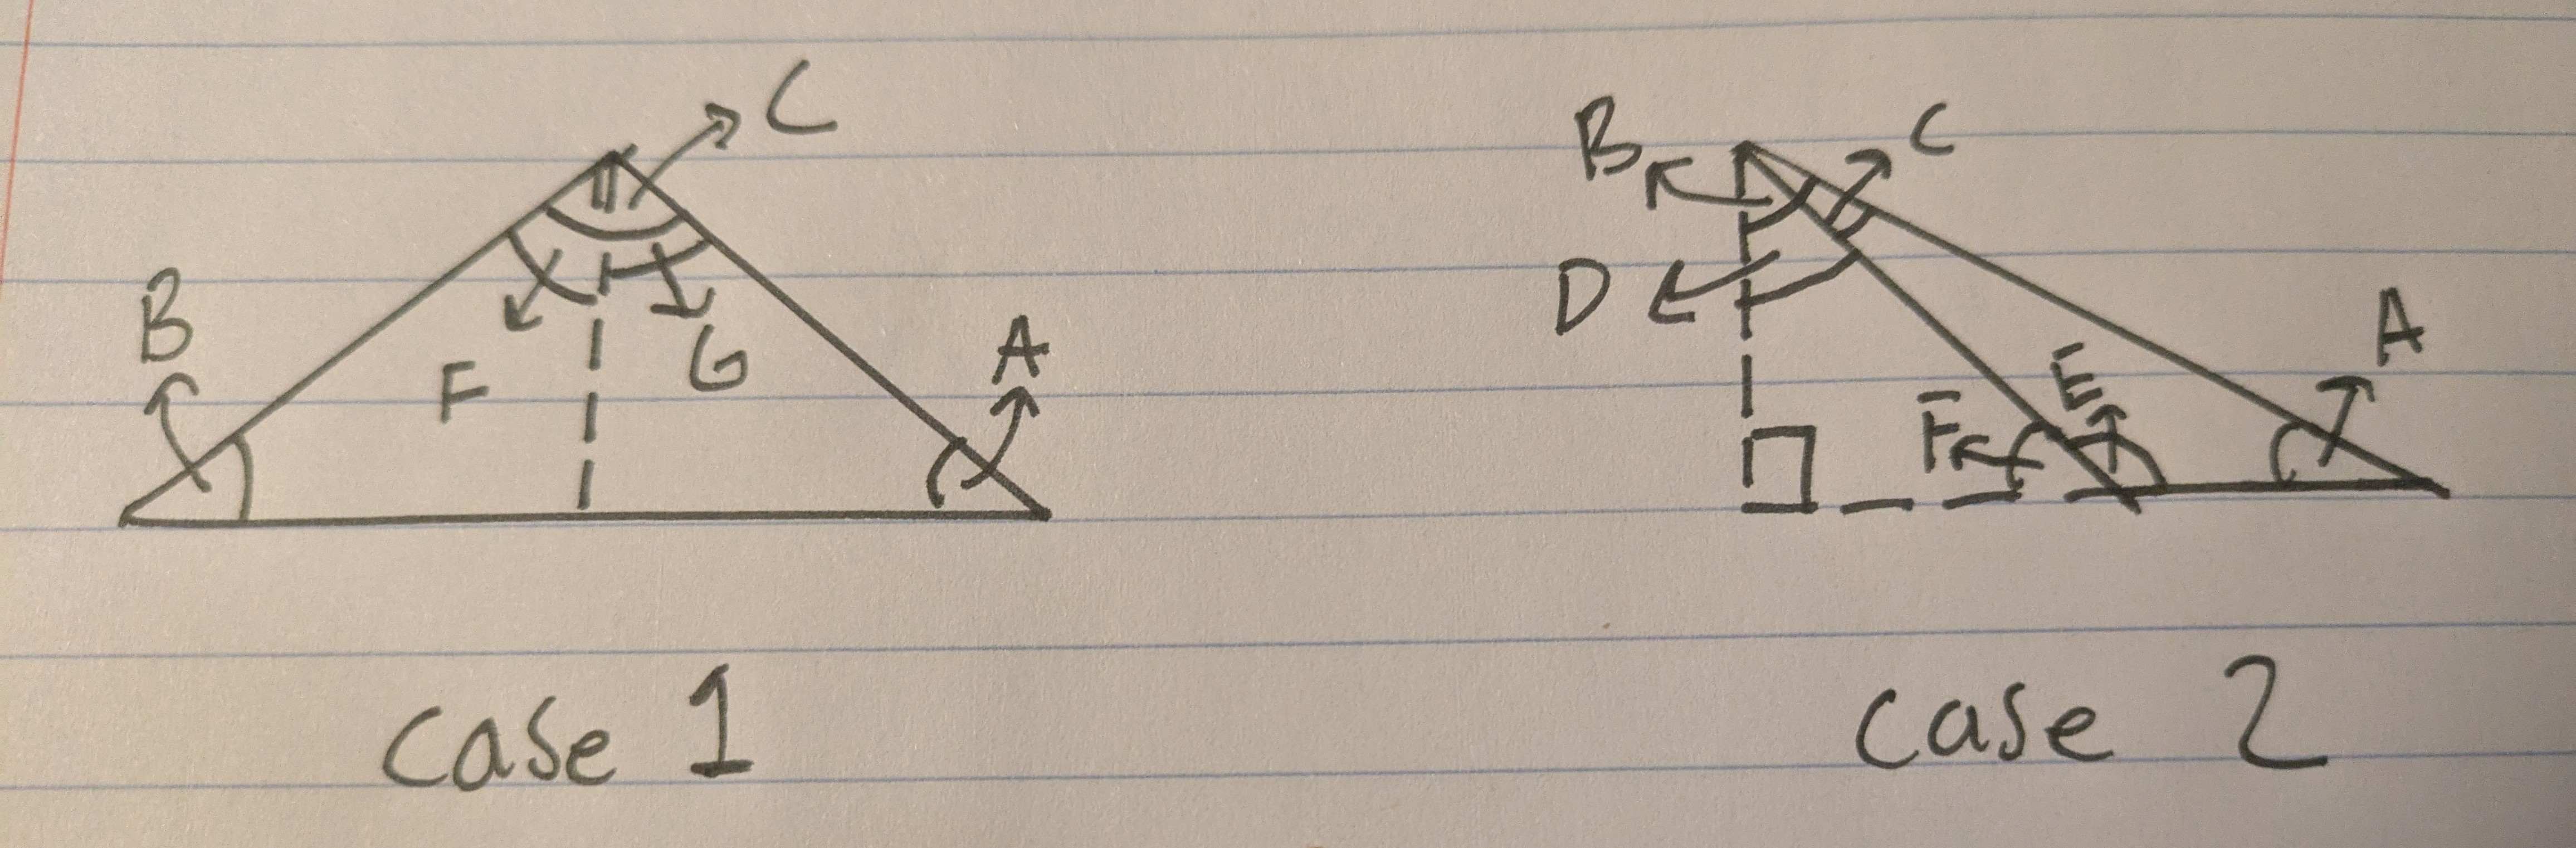 C
B
F
G
A
case 1
B
C
D
F
E
A
case 2